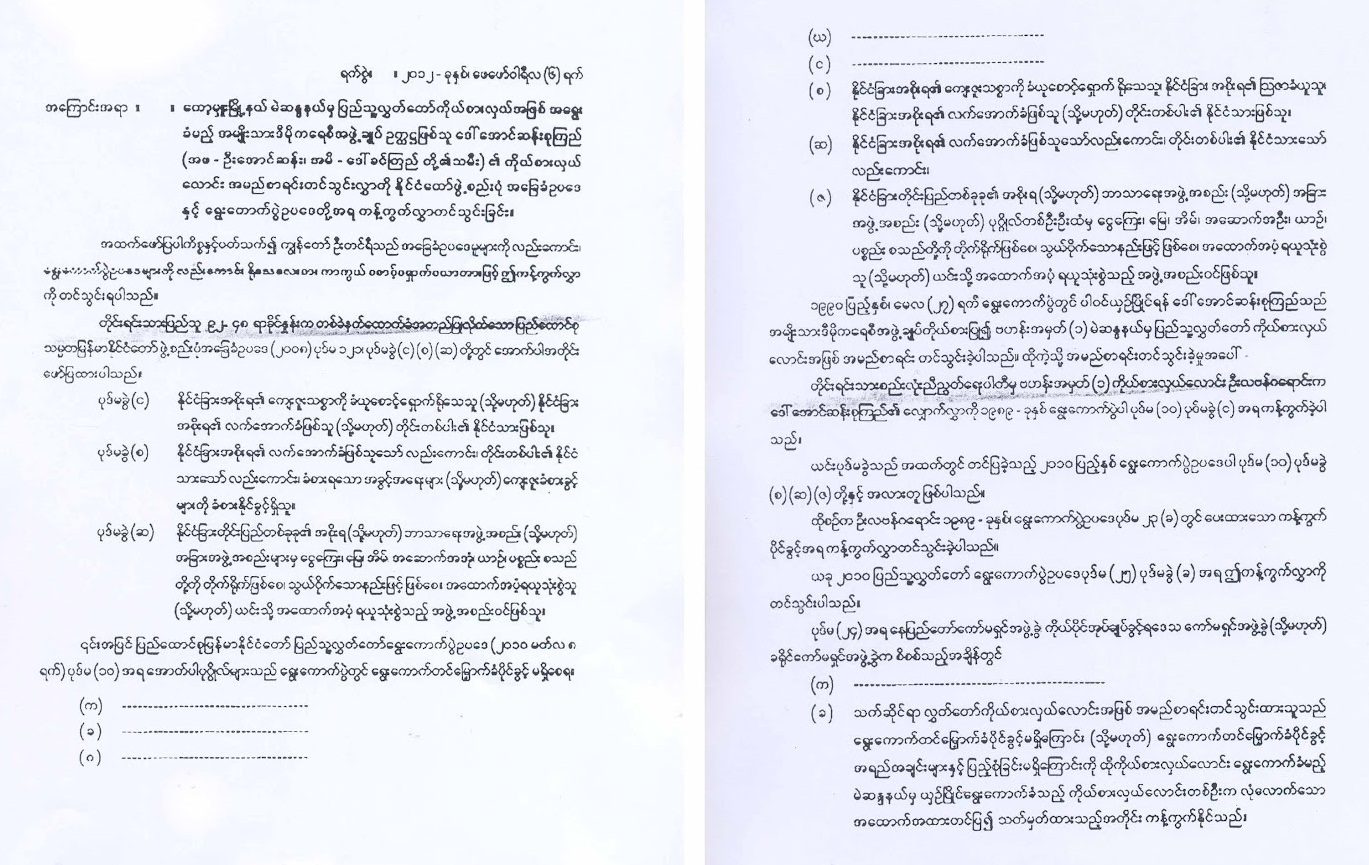 ရက်စွဲ။ ။ ၂၀၁၂ - ခုနှစ်၊ ဖေဖော်ဝါရီလ (၆) ရက်
အကြောင်းအရာ ။ ။ ကော့မှူးမြို့နယ် မဲဆန္ဒနယ်မှ ပြည်သူ့လွှတ်တော်ကိုယ်စားလှယ်အဖြစ် အရွေး
ခံမည့် အမျိုးသားဒီမိုကရေစီအဖွဲ့ချုပ် ဥက္ကဋ္ဌဖြစ်သူ ဒေါ်အောင်ဆန်းစုကြည်
(အဖ - ဦးအောင်ဆန်း၊ အမိ - ဒေါ်ခင်ကြည် တို့၏သမီး) ၏ ကိုယ်စားလှယ်
လောင်း အမည်စာရင်းတင်သွင်းလွှာကို နိုင်ငံတော်ဖွဲ့စည်းပုံ အခြေခံဥပဒေ
နှင့် ရွေးကောက်ပွဲဥပဒေတို့အရ ကန့်ကွက်လွှာတင်သွင်းခြင်း။
အထက်ဖော်ပြပါကိစ္စနှင့်ပတ်သက်၍ ကျွန်တော် ဦးတင်ရီသည် အခြေခံဥပဒေမူများကို လည်းကောင်း၊
ရွေးကောက်ပွဲဥပဒေများကို လည်းကောင်း ရိုသေလေးစား ကာကွယ် စောင့်ရှောက်သောအားဖြင့် ဤကန့်ကွက်လွှာ
ကို တင်သွင်းရပါသည်။
တိုင်းရင်းသားပြည်သူ ၉၂. ၄၈ ရာခိုင်နှုန်းက တစ်ခဲနက်ထောက်ခံအတည်ပြုလိုက်သော ပြည်ထောင်စု
သမ္မတမြန်မာနိုင်ငံတော် ဖွဲ့စည်းပုံအခြေခံဥပဒေ (၂၀၀၈) ပုဒ်မ ၁၂၁၊ ပုဒ်မခွဲ (င) (စ) (ဆ) တို့တွင် အောက်ပါအတိုင်း
ဖော်ပြထားပါသည်။
ပုဒ်မခွဲ (င) နိုင်ငံခြားအစိုးရ၏ ကျေးဇူးသစ္စာကို ခံယူစောင့်ရှောက်ရိုသေသူ (သို့မဟုတ်) နိုင်ငံခြား
အစိုးရ၏ လက်အောက်ခံဖြစ်သူ (သို့မဟုတ်) တိုင်းတစ်ပါး၏ နိုင်ငံသားဖြစ်သူ။
ပုဒ်မခွဲ (စ) နိုင်ငံခြားအစိုးရ၏ လက်အောက်ခံဖြစ်သူသော် လည်းကောင်း၊ တိုင်းတစ်ပါး၏ နိုင်ငံ
သားသော် လည်းကောင်း၊ ခံစားရသော အခွင့်အရေးများ (သို့မဟုတ်) ကျေးဇူးခံစားခွင့်
များကို ခံစားနိုင်ခွင့်ရှိသူ။
ပုဒ်မခွဲ (ဆ) နိုင်ငံခြားတိုင်းပြည်တစ်ခုခု၏ အစိုးရ (သို့မဟုတ်) ဘာသာရေးအဖွဲ့အစည်း (သို့မဟုတ်)
အခြားအဖွဲ့အစည်းများမှ ငွေကြေး၊ မြေ၊ အိမ်၊ အဆောက်အအုံ၊ ယာဉ်၊ ပစ္စည်း စသည်
တို့ကို တိုက်ရိုက်ဖြစ်စေ၊ သွယ်ဝိုက်သောနည်းဖြင့် ဖြစ်စေ၊ အထောက်အပံ့ရယူသုံးစွဲသူ
(သို့မဟုတ်) ယင်းသို့ အထောက်အပံ့ ရယူသုံးစွဲသည့် အဖွဲ့အစည်းဝင်ဖြစ်သူ။
၎င်းအပြင် ပြည်ထောင်စုမြန်မာနိုင်ငံတော် ပြည်သူ့လွှတ်တော်ရွေးကောက်ပွဲဥပဒေ (၂၀၁၀ မတ်လ ၈
ရက်) ပုဒ်မ (၁၀) အရ အောက်ပါပုဂ္ဂိုလ်များသည် ရွေးကောက်ပွဲတွင် ရွေးကောက်တင်မြှောက်ခံပိုင်ခွင့် မရှိစေရ။
(က) ------------------------------
(ခ) ------------------------------
(ဂ) ------------------------------
(ဃ) ------------------------------
(င) ------------------------------
(စ) နိုင်ငံခြားအစိုးရ၏ ကျေးဇူးသစ္စာကို ခံယူစောင့်ရှောက် ရိုသေသူ၊ နိုင်ငံခြား အစိုးရ၏ ဩဇာခံယူသူ၊
နိုင်ငံခြားအစိုးရ၏ လက်အောက်ခံဖြစ်သူ (သို့မဟုတ်) တိုင်းတစ်ပါး၏ နိုင်ငံသားဖြစ်သူ။
(ဆ) နိုင်ငံခြားအစိုးရ၏ လက်အောက်ခံဖြစ်သူသော်လည်းကောင်း၊ တိုင်းတစ်ပါး၏ နိုင်ငံသားသော်
လည်းကောင်း၊
(ဇ) နိုင်ငံခြားတိုင်းပြည်တစ်ခုခု၏ အစိုးရ (သို့မဟုတ်) ဘာသာရေးအဖွဲ့အစည်း (သို့မဟုတ်) အခြား
အဖွဲ့အစည်း (သို့မဟုတ်) ပုဂ္ဂိုလ်တစ်ဦးဦးထံမှ ငွေကြေး၊ မြေ၊ အိမ်၊ အဆောက်အဦး၊ ယာဉ်၊
ပစ္စည်း စသည်တို့ကို တိုက်ရိုက်ဖြစ်စေ၊ သွယ်ဝိုက်သောနည်းဖြင့် ဖြစ်စေ၊ အထောက်အပံ့ ရယူသုံးစွဲ
သူ (သို့မဟုတ်) ယင်းသို့ အထောက်အပံ့ ရယူသုံးစွဲသည့် အဖွဲ့အစည်းဝင်ဖြစ်သူ။
၁၉၉၀ ပြည့်နှစ်၊ မေလ (၂၇) ရက် ရွေးကောက်ပွဲတွင် ပါဝင်ယှဉ်ပြိုင်ရန် ဒေါ်အောင်ဆန်းစုကြည်သည်
အမျိုးသားဒီမိုကရေစီအဖွဲ့ချုပ်ကိုယ်စားပြု၍ ဗဟန်းအမှတ် (၁) မဲဆန္ဒနယ်မှ ပြည်သူ့လွှတ်တော် ကိုယ်စားလှယ်
လောင်းအဖြစ် အမည်စာရင်း တင်သွင်းခဲ့ပါသည်။ ထိုကဲ့သို့ အမည်စာရင်းတင်သွင်းခဲ့မှုအပေါ်
တိုင်းရင်းသားစည်းလုံးညီညွတ်ရေးပါတီမှ ဗဟန်းအမှတ် (၁) ကိုယ်စားလှယ်လောင်း ဦးလဗန်ဂရောင်းက
ဒေါ်အောင်ဆန်းစုကြည်၏ လျှောက်လွှာကို ၁၉၈၉ - ခုနှစ် ရွေးကောက်ပွဲပါ ပုဒ်မ (၁၀) ပုဒ်မခွဲ (င) အရကန့်ကွက်ခဲ့ပါ
သည်။
ယင်းပုဒ်မခွဲသည် အထက်တွင် တင်ပြခဲ့သည့် ၂၀၁၀ ပြည့်နှစ် ရွေးကောက်ပွဲဥပဒေပါ ပုဒ်မ (၁၀) ပုဒ်မခွဲ
(စ) (ဆ) (ဇ) တို့နှင့် အလားတူဖြစ်ပါသည်။
ထိုစဉ်က ဦးလဗန်ဂရောင်း ၁၉၈၉ - ခုနှစ်၊ ရွေးကောက်ပွဲဥပဒေပုဒ်မ ၂၃ (ခ) တွင် ပေးထားသော ကန့်ကွက်
ပိုင်ခွင့်အရ ကန့်ကွက်လွှာတင်သွင်းခဲ့ပါသည်။
ယခု ၂၀၁၀ ပြည်သူ့လွှတ်တော် ရွေးကောက်ပွဲဥပဒေပုဒ်မ (၂၅) ပုဒ်မခွဲ (ခ) အရ ဤကန့်ကွက်လွှာကို
တင်သွင်းပါသည်။
ပုဒ်မ (၂၄) အရ နေပြည်တော်ကော်မရှင်အဖွဲ့ခွဲ ကိုယ်ပိုင်အုပ်ချုပ်ခွင့်ရဒေသ ကော်မရှင်အဖွဲ့ခွဲ (သို့မဟုတ်)
ခရိုင်ကော်မရှင်အဖွဲ့ခွဲက စိစစ်သည့်အချိန်တွင်
(က) ------------------------------
(ခ) သက်ဆိုင်ရာ လွှတ်တော်ကိုယ်စားလှယ်လောင်းအဖြစ် အမည်စာရင်းတင်သွင်းထားသူသည်
ရွေးကောက်တင်မြှောက်ခံပိုင်ခွင့်မရှိကြောင်း (သို့မဟုတ်) ရွေးကောက်တင်မြှောက်ခံပိုင်ခွင့်
အရည်အချင်းများနှင့် ပြည့်စုံခြင်းမရှိကြောင်းကို ထိုကိုယ်စားလှယ်လောင်း ရွေးကောက်ခံမည့်
မဲဆန္ဒနယ်မှ ယှဉ်ပြိုင်ရွေးကောက်ခံသည့် ကိုယ်စားလှယ်လောင်းတစ်ဦးက လုံလောက်သော
အထောက်အထားတင်ပြ၍ သတ်မှတ်ထားသည့်အတိုင်း ကန့်ကွက်နိုင်သည်။